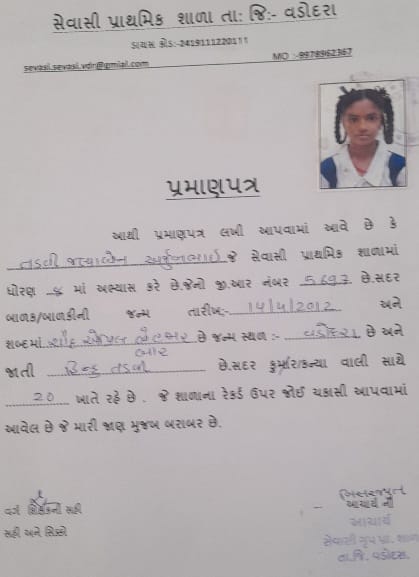 સેવાસી પ્રાથમિક શાળા તા: જિ:- વડોદરા
ડાયસ કોડ:-24191112201
sevasi.sevasi.vdr@gmial.com
MO :-9978962367
પ્રમાણપત્ર
આથી પ્રમાણપત્ર લખી આપવામાં આવે છે કે
તડવી અર્જુનભાઈ જે સેવાસી પ્રાથમિક શાળામાં
ધોરણ માં અભ્યાસ કરે છે.જેનો જી.આર નંબર 5697 છે.સદર
બાળક/બાળકીની જન્મ તારીખ:- 14/4/2012 અને
શબ્દમાં ચૌદ એપ્રિલ બે હજાર છે જન્મ સ્થળ :- વડોદરા છે અને
બાર
જાતી હિન્દુ તડવી છે.સદર કુમાર/કન્યા વાલી સાથે
20 ખાતે રહે છે . જે શાળાના રેકર્ડ ઉપર જોઈ ચકાસી આપવામાં
આવેલ છે જે મારી જાણ મુજબ બરાબર છે.
વર્ગ શિક્ષકની સહી
આચાર્ય ની
સહી અને સિક્કો
આચાર્ય
સેવાસી ગૃપ પ્રા. શાળા
તા.જિ. વડોદરા.